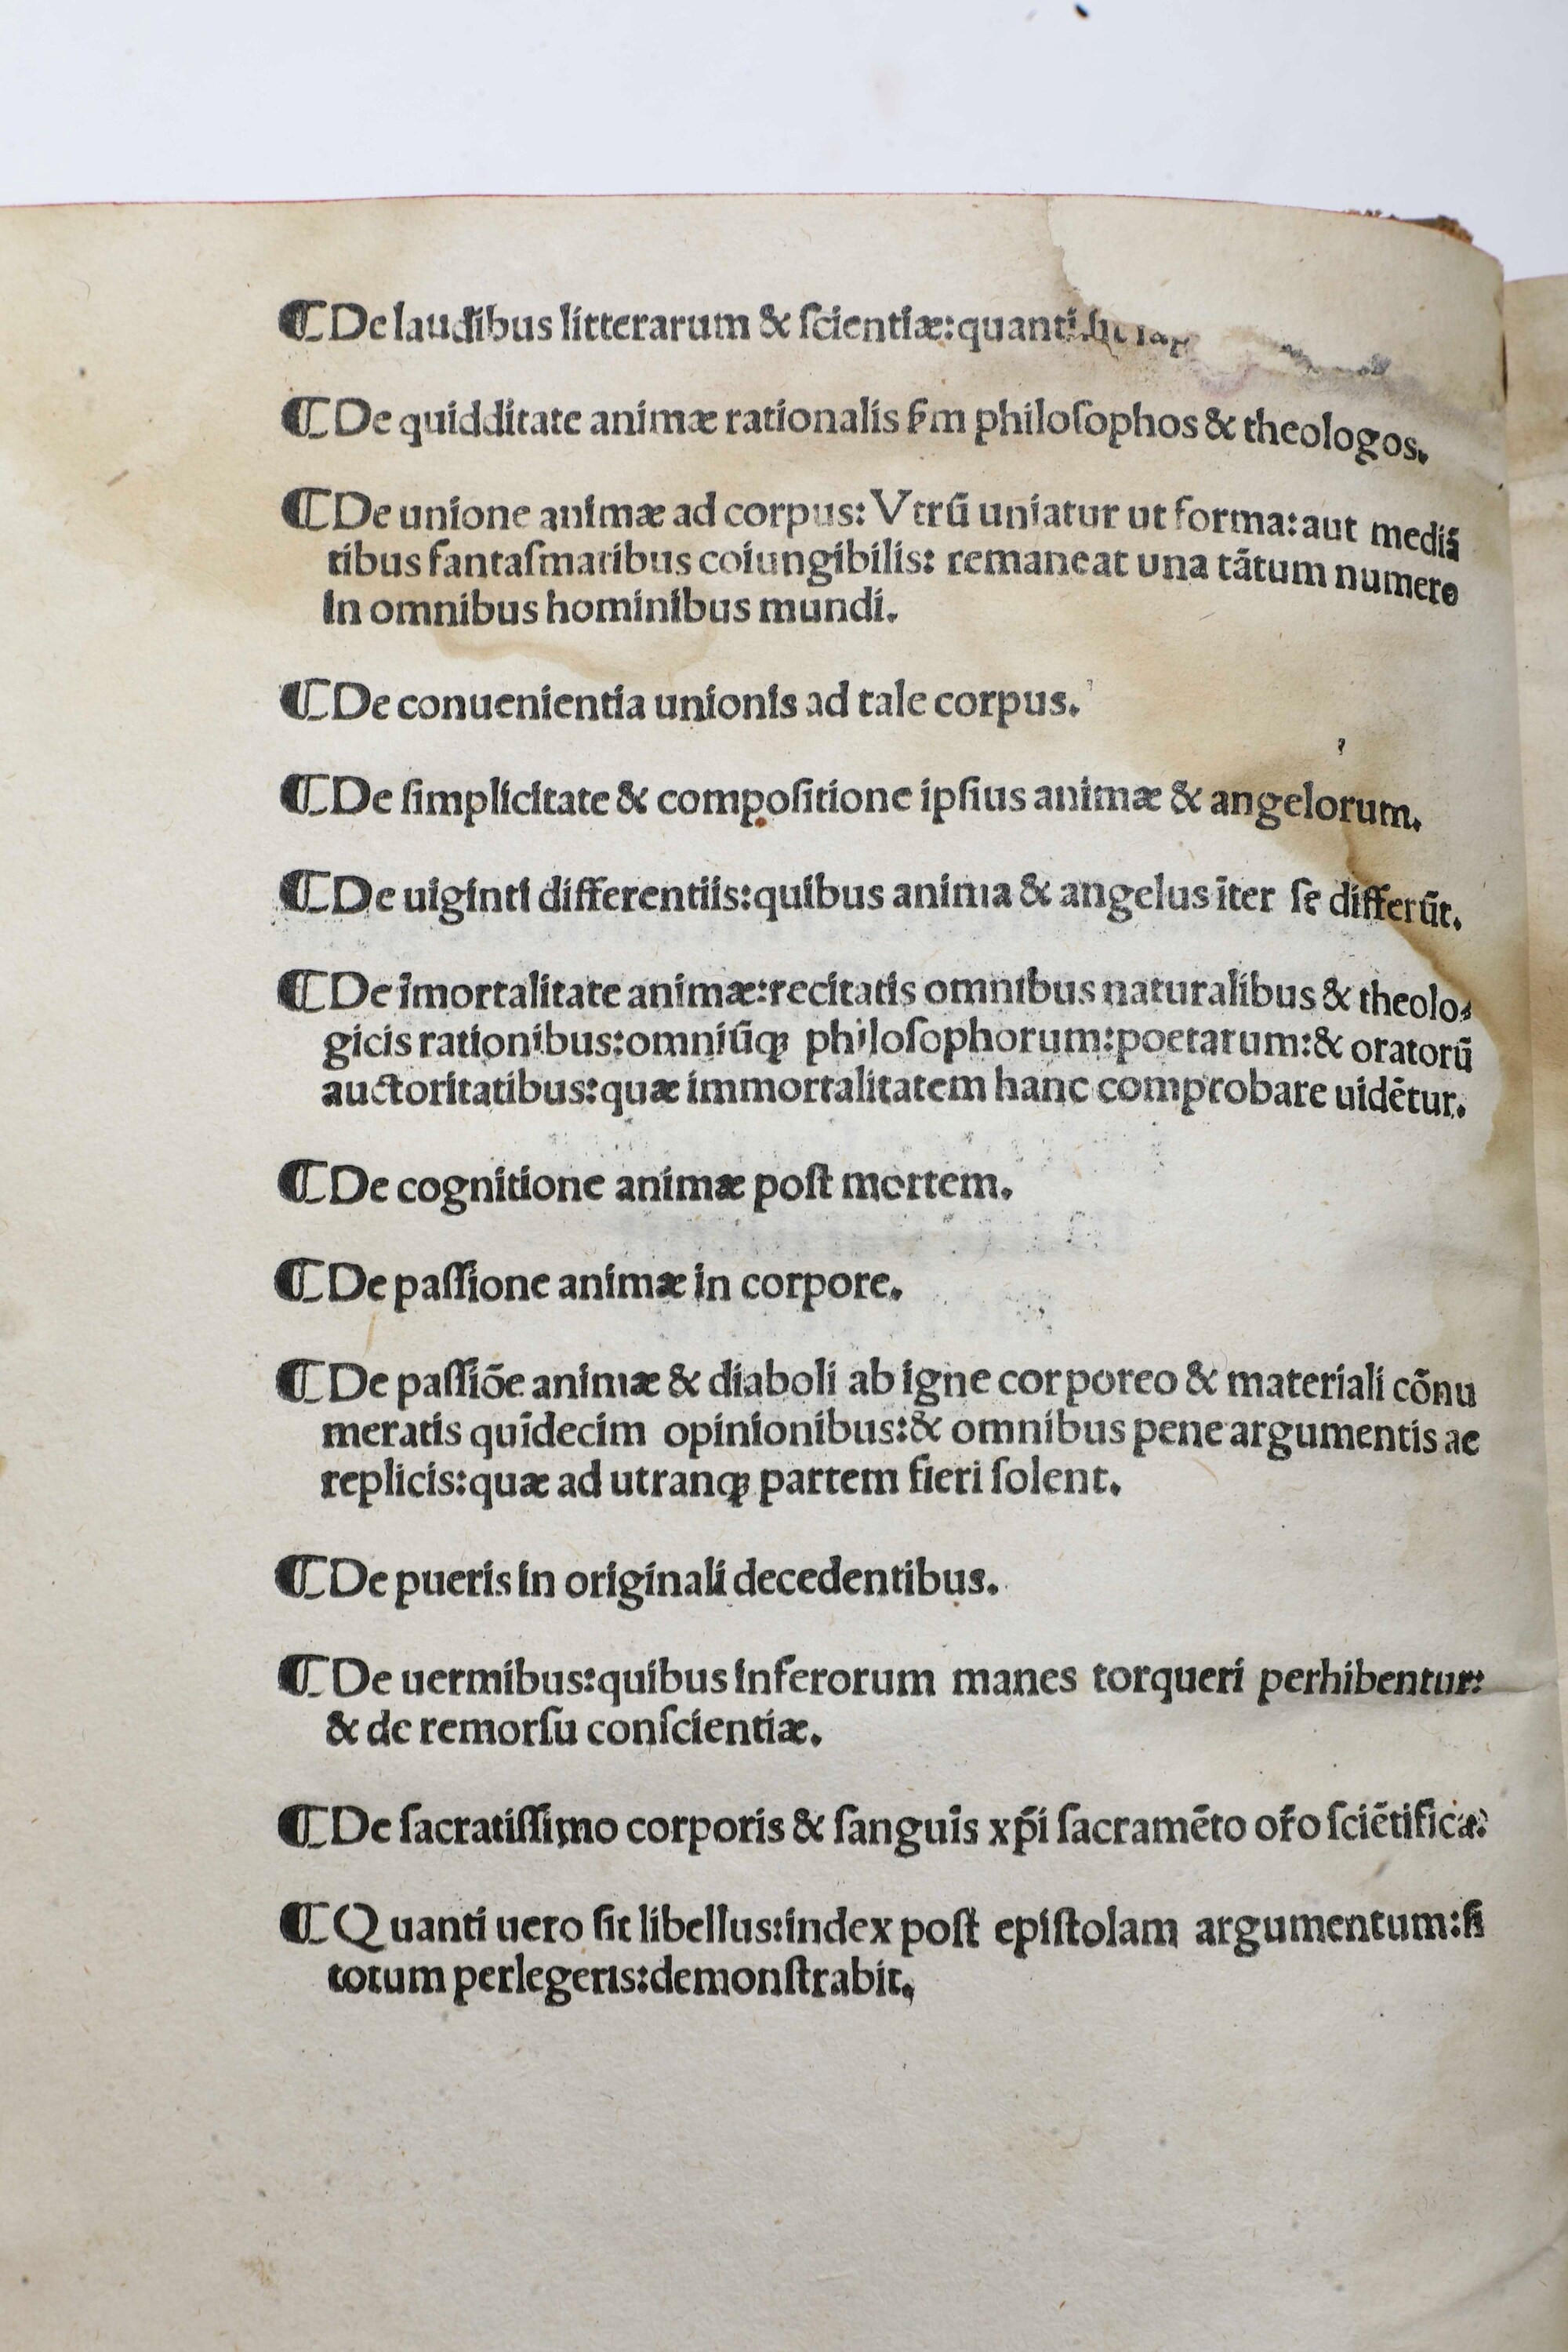 ¶De laudibus litterarum & ſcientiæ:quanti ſit
¶De quidditate animæ rationalis ſ̄m philoſophos & theologos.
¶De unione animæ ad corpus: Vtrū uniatur ut forma:aut mediā
tibus fantaſmatibus coiungibilis: remaneat una tātum numero
in omnibus hominibus mundi.
¶De conuenientia unionis ad tale corpus.
¶De ſimplicitate & compoſitione ipſius animæ & angelorum.
¶De uiginti differentiis:quibus anima & angelus īter ſe differūt.
¶De īmortalitate animæ:recitatis omnibus naturalibus & theolo-
gicis rationibus:omniūqꝫ philoſophorum:poetarum:& oratorū
auctoritatibus:quæ immortalitatem hanc comprobare uidētur.
¶De cognitione animæ poſt mortem.
¶De paſſione animæ in corpore.
¶De paſſiōe animæ & diaboli ab igne corporeo & materiali cōnu
meratis quīdecim opinionibus:& omnibus pene argumentis ac
replicis:quæ ad utranqꝫ partem fieri ſolent.
¶De pueris in originali decedentibus.
¶De uermibus:quibus inferorum manes torqueri perhibentur:
& de remorſu conſcientiæ.
¶De ſacratiſſimo corporis & ſanguīs xp̄i ſacramēto or̄o ſciētifica.
¶Quanti uero ſit libellus:index poſt epiſtolam argumentum:ſi
totum perlegeris:demonſtrabit.